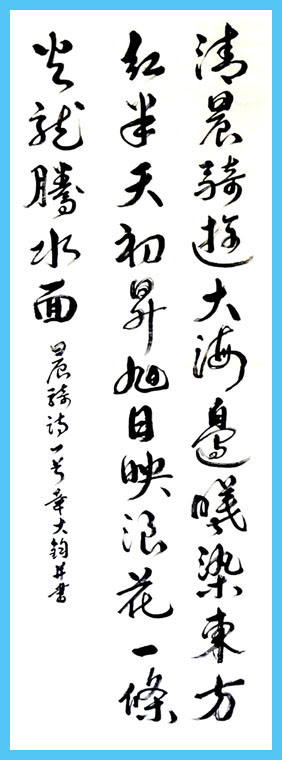 清晨騎遊大海邊曦染東方
紅半天初昇旭日映浪花一條
火龍騰水面
晨騎詩一首章大鈞并書